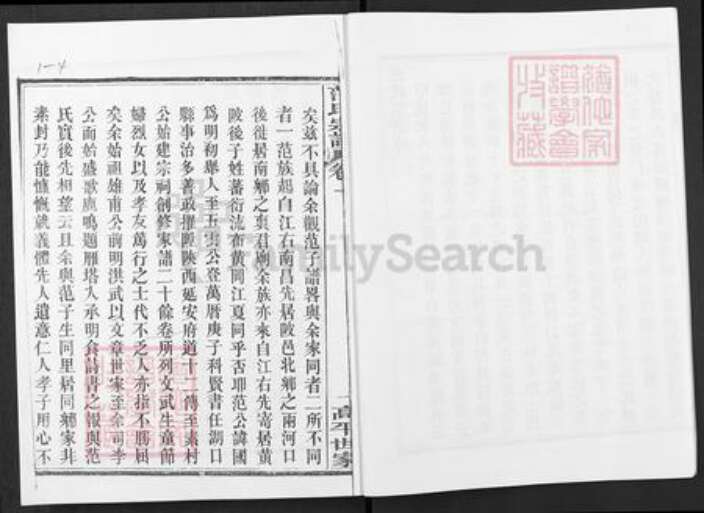 1-4
矣茲不具論余觀范子譜畧與余家同者二所不同
者一范族起自江右南昌先居陂邑北鄉之兩河口
後徙居南鄉之爽君劉余族亦來自江右先寄居黃
陂後子姓蕃衍流布黃岡江夏同乎否耶范公諱國
為明初舉人至五雲公登萬厯庚子科賢書任湖口
縣事治多善政擢陞陝西延安府道十二傳至素村
公始建宗祠創修家譜二十餘卷所列文武生童節
婦烈女以及孝友篤行之士代不乏人亦指不勝屈
矣余始祖雄甫公前明洪武以文章世家至余司李
公而始盛歌鹿鳴題雁塔入承明食詩書之報與范
氏實後先相望云且余與范子生同里居同鄉家非
素封乃能慷慨就義體先人遺意仁人孝子用心不
范氏宗譜 卷一
一 高平世家
FamilySearch